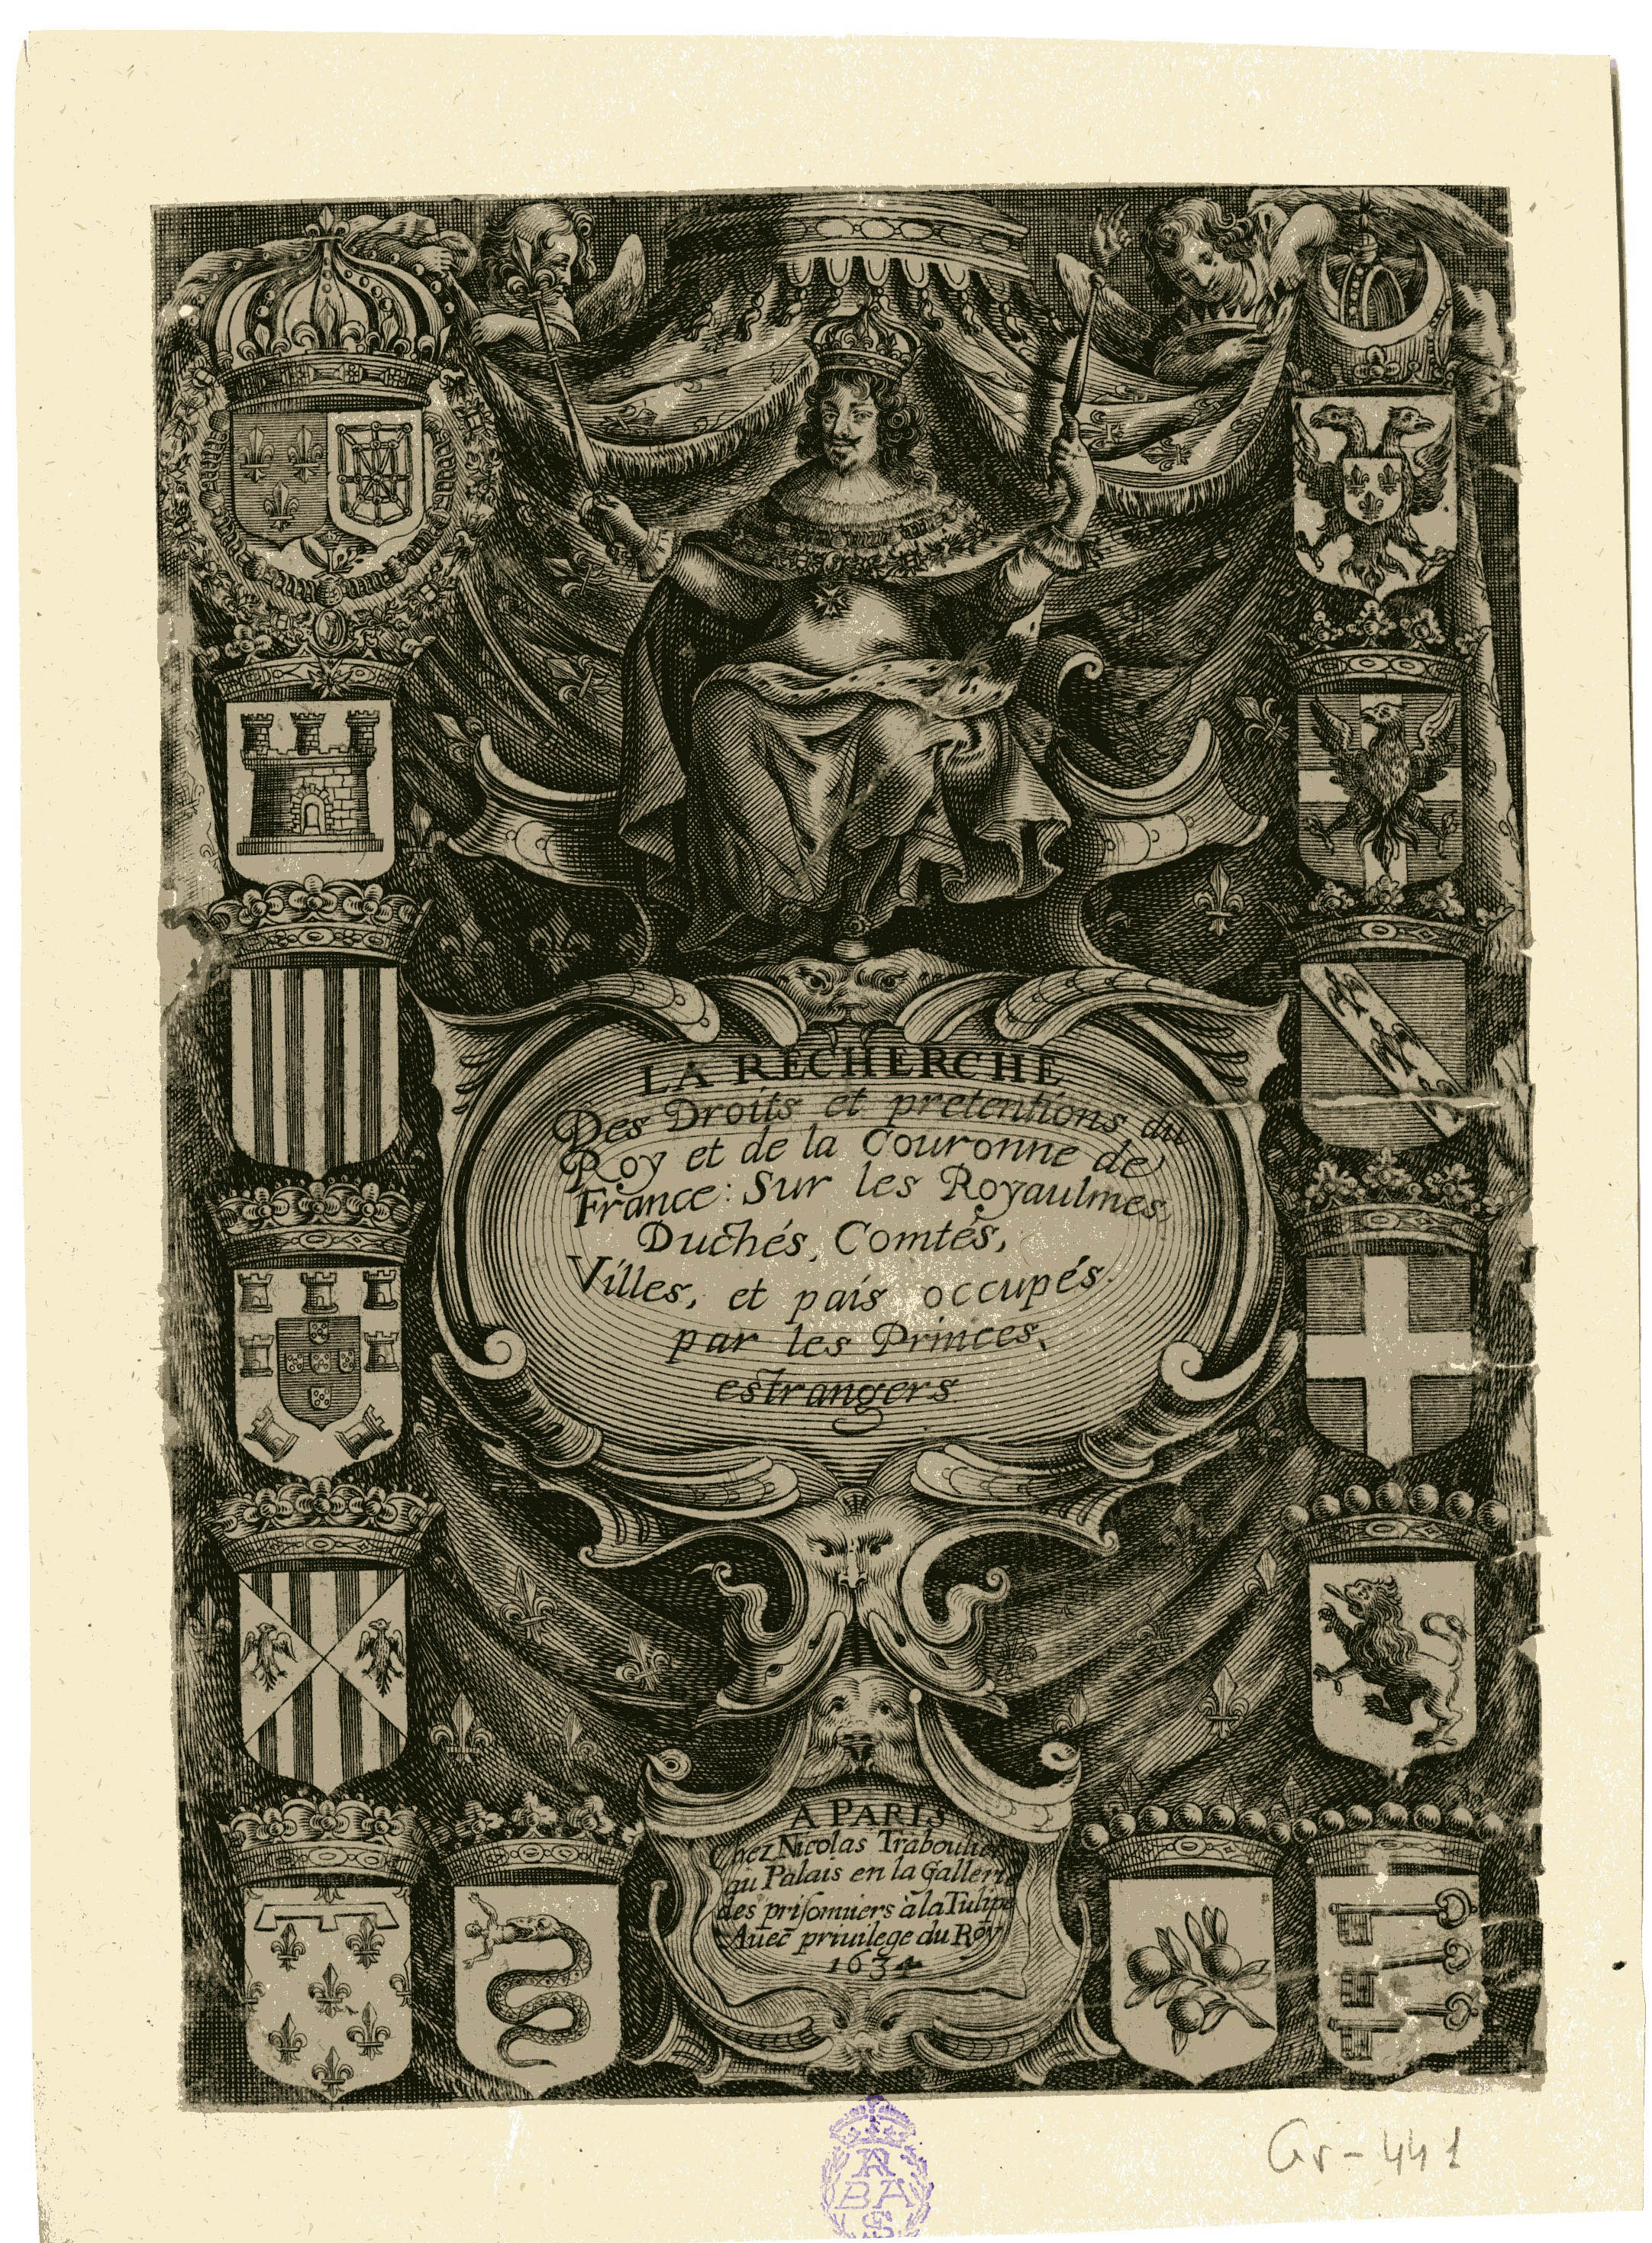 LA RECHERCHE
Des Droits et pretentions du
Roy et de la Couronne de
France: Sur les Royaulmes,
Duchés, Comtés,
Villes, et païs occupés
par les Princes,
estrangers
A PARIS
Chez Nicolas Traboulier
au Palais en la Gallerie
des prisonniers à la Tulipe
Auec priuilege du Roy
1634
RA
BA
S
Gr-441